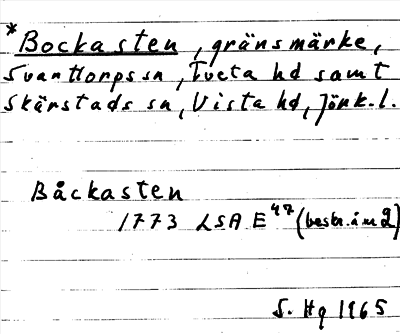 *Bockasten, gränsmärke,
Svarttorps sn, Tveta hd samt
Skärstads sn, Vista hd, Jönk.l.
Båckasten
1773 LSA E47 (beskr. åm 2)
S. Hg 1965